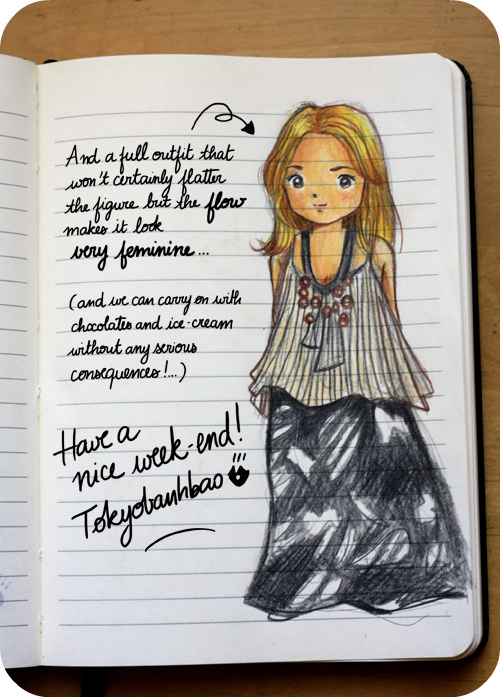 And a full outfit that
won't certainly flatter
the figure but the flow
makes it look
very feminine...
(and we can carry on with
chocolates and ice-cream
without any serious
consequences!...)
Have a
nice week-end!
Tokyobanhbao